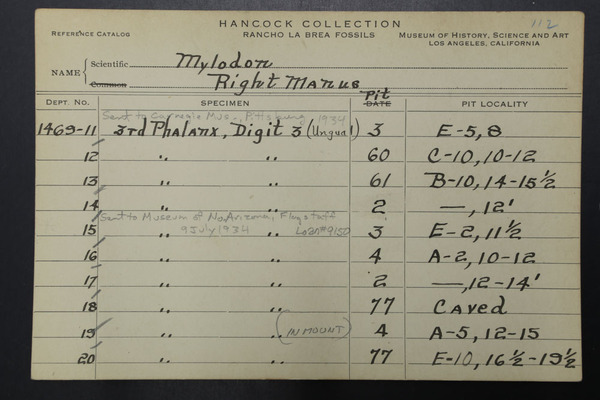 112
HANCOCK COLLECTION
REFERENCE CATALOG RANCHO LA BREA FOSSILS MUSEUM OF HISTORY, SCIENCE AND ART
LOS ANGELES, CALIFORNIA
NAME Scientific Mylodon
Common Right Manus
DEPT. No. SPECIMEN Pit DATE PIT LOCALITY
Sent to Carnegie Mus., Pittsburg 1934
1469-11 3rd Phalanx, Digit 3 (Ungual) 3 E-5, 8
12 " " 60 C-10, 10-12
13 " " 61 B-10, 14-15½
14 " " 2 —, 12'
Sent to Museum of No. Arizona, Flagstaff
15 " " 3 E-2, 11½
9 July 1934 Loan #9150
16 " " 4 A-2, 10-12
17 " " 2 —, 12-14'
18 " " 77 Caved
19 " " (IN MOUNT) 4 A-5, 12-15
20 " " 77 E-10, 16½-19½